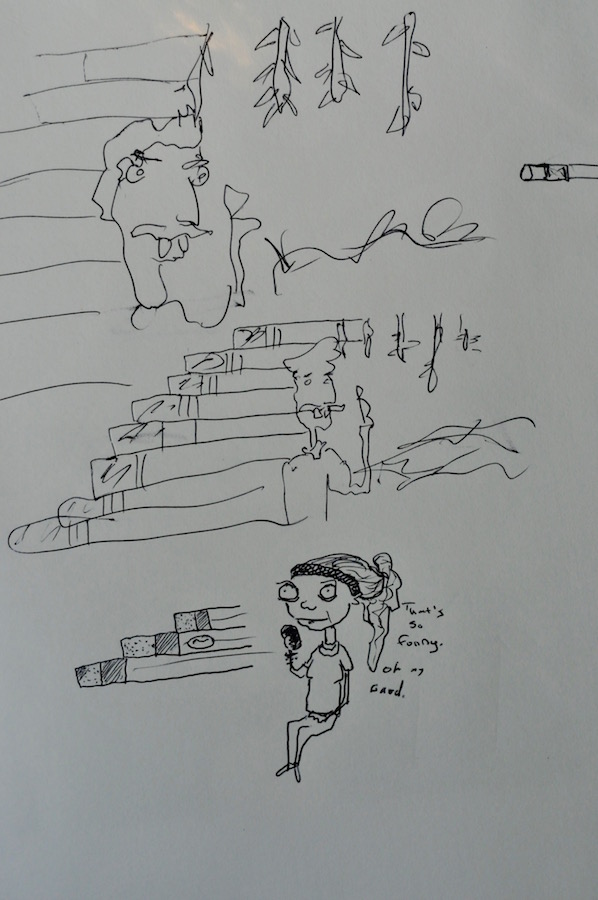 That's
so
funny.
oh my
Gawd.